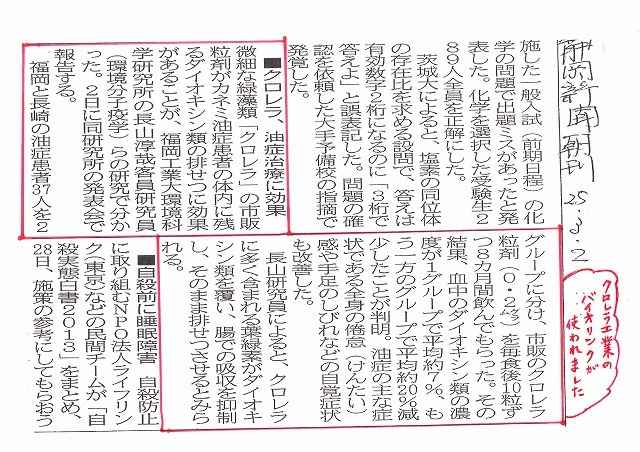 静岡新聞朝刊 25.3.2
クロレラ工業の
バイオリンクが
使われました
施した一般入試（前期日程）の化
学の問題で出題ミスがあったと発
表した。化学を選択した受験生2
89人全員を正解にした。
茨城大によると、塩素の同位体
の存在比を求める設問で、答えは
有効数字2桁になるのに「3桁で
答えよ」と誤表記した。問題の確
認を依頼した大手予備校の指摘で
発覚した。
■クロレラ、油症治療に効果
微細な緑藻類「クロレラ」の市販
粒剤がカネミ油症患者の体内に残
るダイオキシン類の排せつに効果
があることが、福岡工業大環境科
学研究所の長山淳哉客員研究員
（環境分子疫学）らの研究で分か
った。2日に同研究所の発表会で
報告する。
福岡と長崎の油症患者37人を2
グループに分け、市販のクロレラ
粒剤（0・2㌘）を毎食後10粒ず
つ8カ月間飲んでもらった。その
結果、血中のダイオキシン類の濃
度が1グループで平均約7％、も
う一方のグループで平均約20％減
少したことが判明。油症の主な症
状である全身の倦怠（けんたい）
感や手足のしびれなどの自覚症状
も改善した。
長山研究員によると、クロレラ
に多く含まれる葉緑素がダイオキ
シン類を覆い、腸での吸収を抑制
し、そのまま排せつさせるとみら
れる。
■自殺前に睡眠障害 自殺防止
に取り組むNPO法人ライフリン
ク（東京）などの民間チームが「自
殺実態白書2013」をまとめ、
28日、施策の参考にしてもらおう